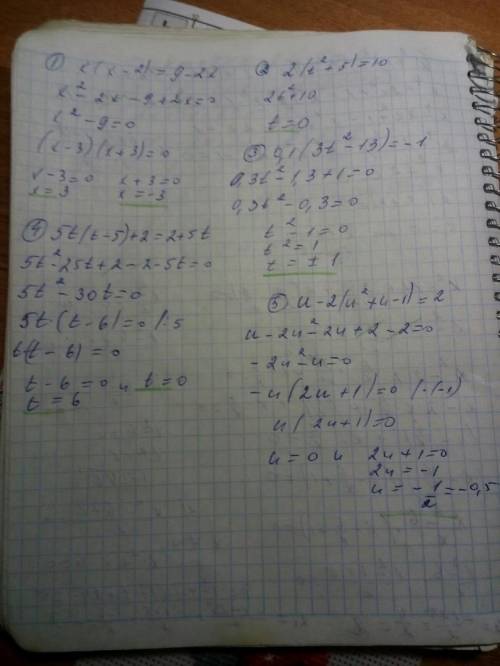 ① x(x-2)=9-2x
x²-2x-9+2x=0
x²-9=0
(x-3)(x+3)=0
x-3=0 x+3=0
x=3 x=-3
② 2(t²+5)=10
2t²+10
t=0
③ 0,1(3t²-13)=-1
0,3t²-1,3+1=0
0,3t²-0,3=0
t²-1=0
t²=1
t=±1
④ 5t(t-5)+2=2+5t
5t²-25t+2-2-5t=0
5t²-30t=0
5t(t-6)=0 |:5
t(t-6)=0
t-6=0 и t=0
t=6
⑤ u-2(u²+u-1)=2
u-2u²-2u+2-2=0
-2u²-u=0
-u(2u+1)=0 |·(-1)
u(2u+1)=0
u=0 и 2u+1=0
2u=-1
u=-1/2=-0,5